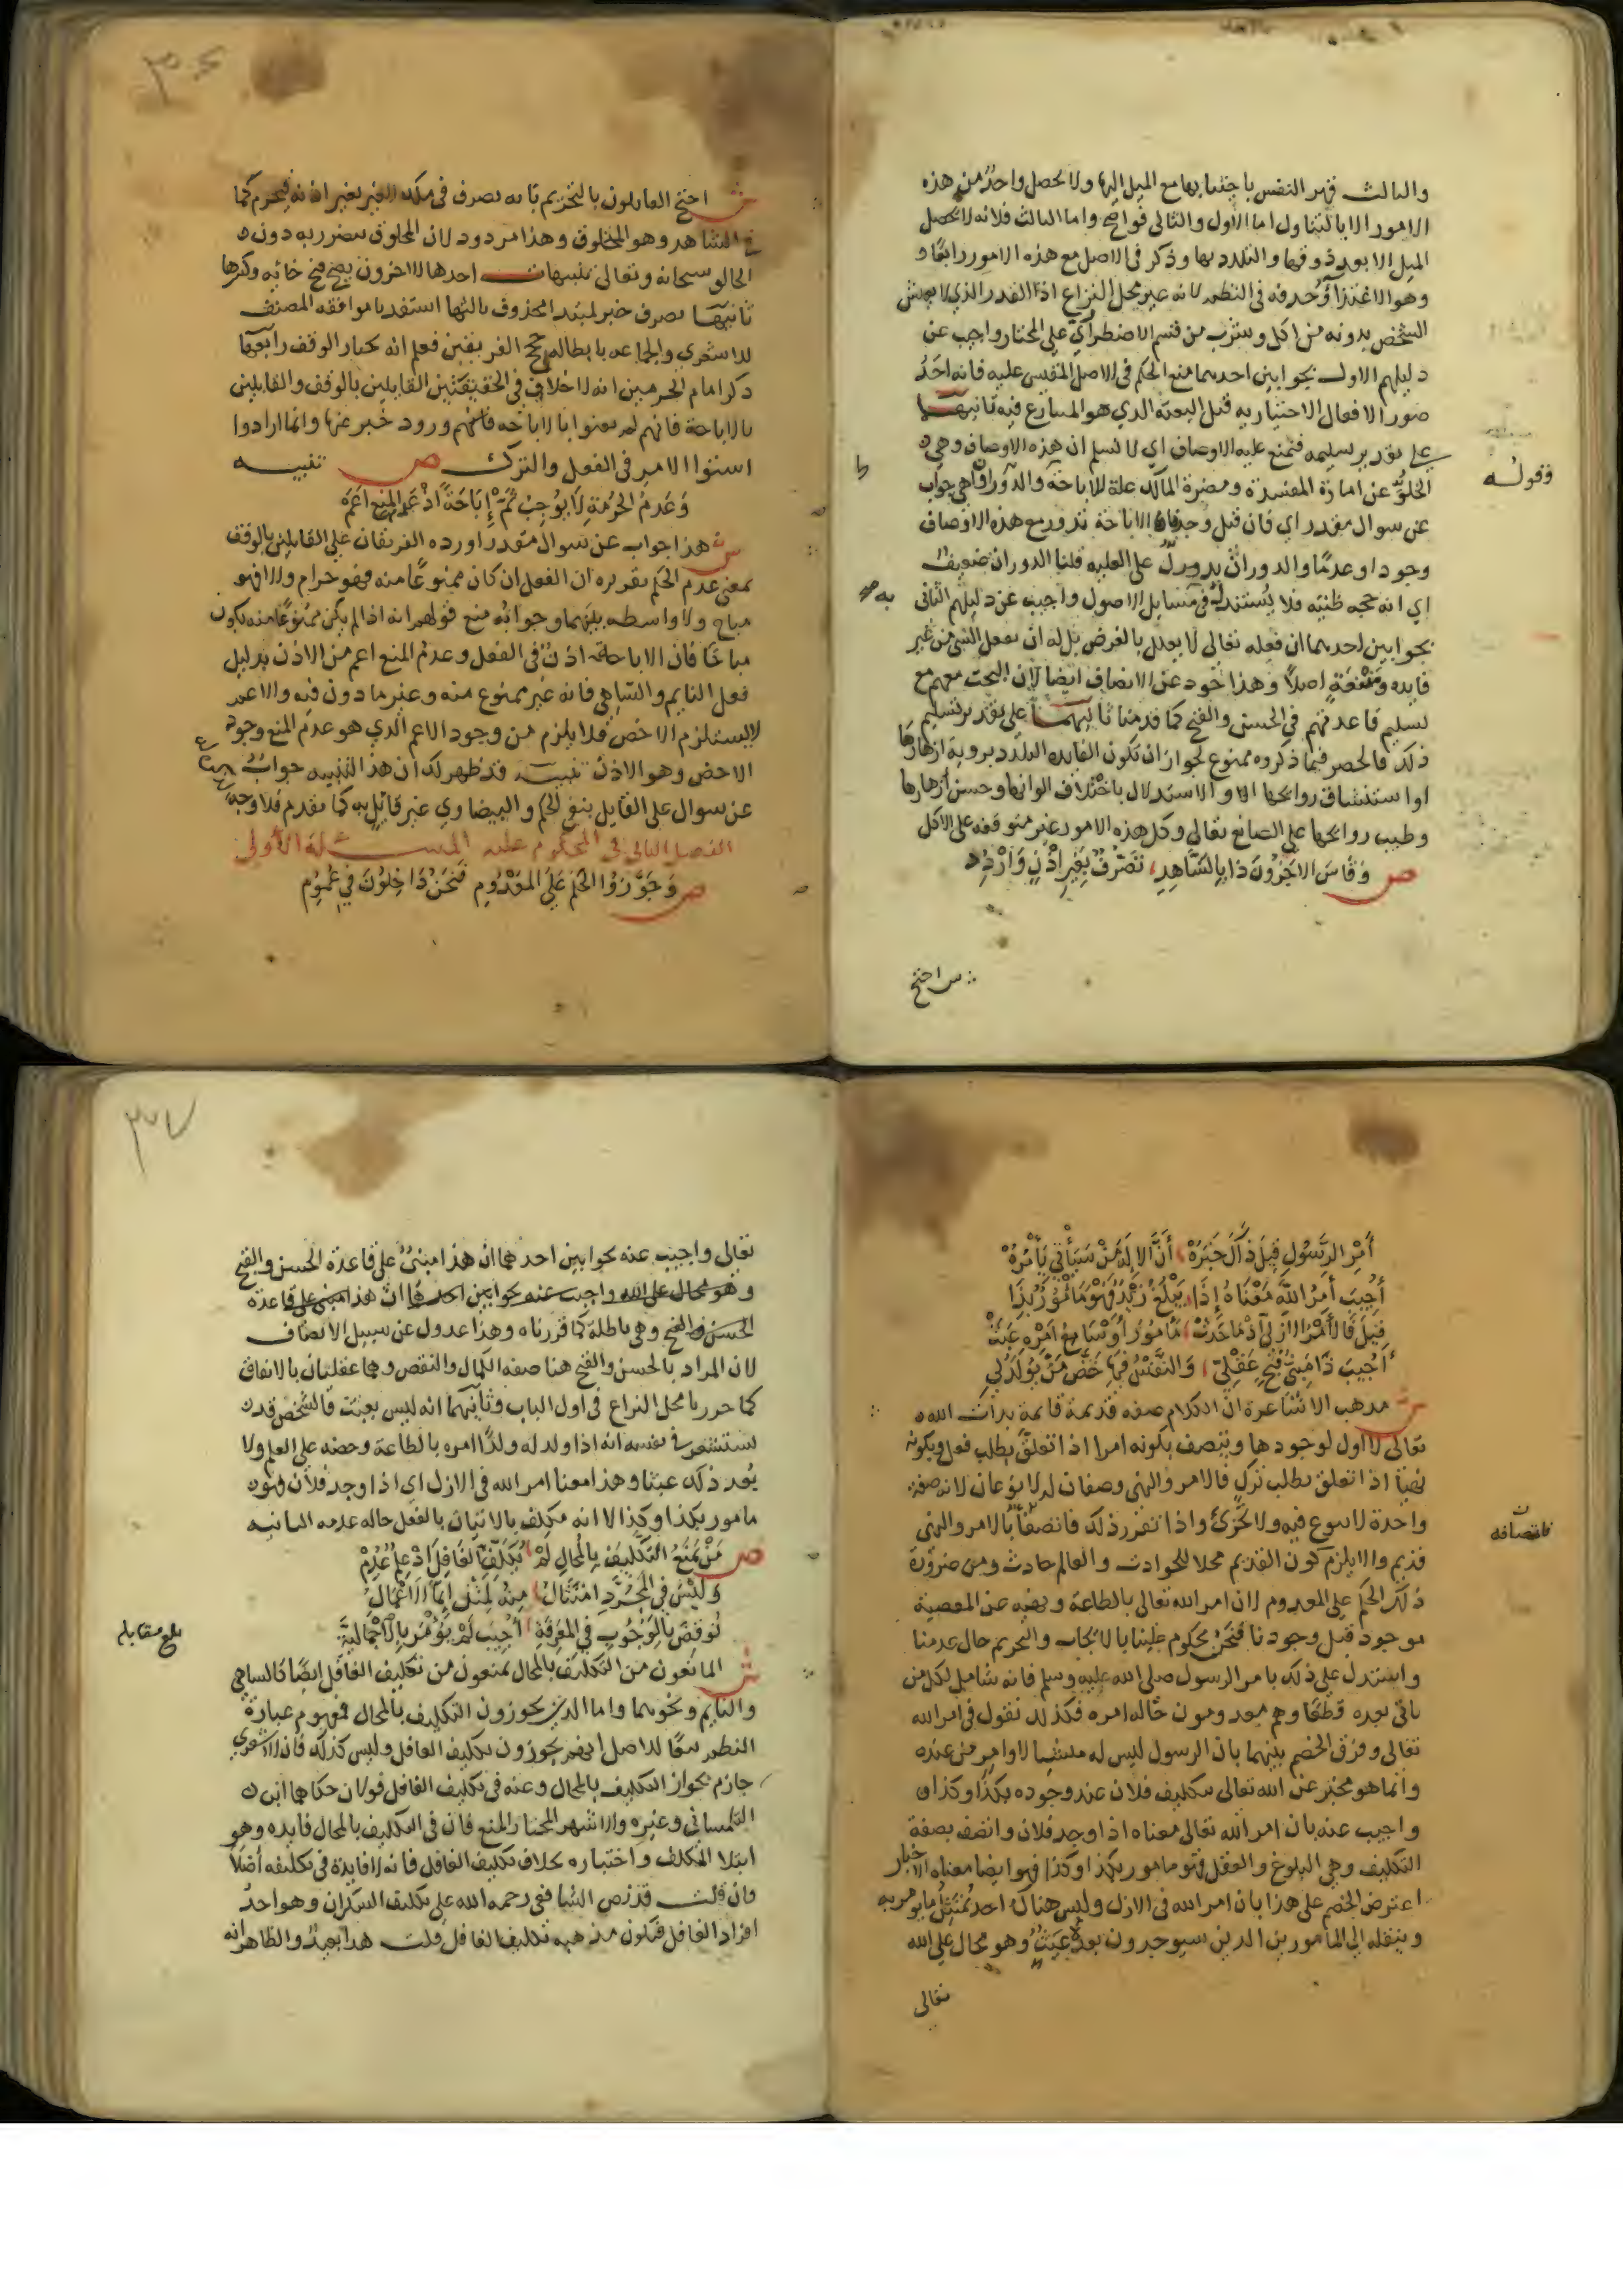 والثالث قهر النفس باجتنابها مع الميل اليها ولا يحصل واحد من هذه
الامور الا بالتناول اما الاول والثاني فواضح واما الثالث فلانه لا يحصل
الميل الا بعد ذوقها والتلذذ بها وذكر في الاصل مع هذه الامور رابعًا و
وهو الاغتذا وحذفه في النظم لانه غير محل النزاع اذ القدر الذي لا يعيش
الشخص بدونه من اكل وشرب من قسم الاضطراري على المختار واجب عن
دليلهم الاول بجوابين احدهما منع الحكم في الاصل المقيس عليه فانه احد
صور الافعال الاختياريه قبل البعثة الذي هو المتنازع فيه ثانيهما
على تقدير تسليمه فنمنع عليه الاوصاف اي لا نسلم ان هذه الاوصاف وهي
الخلو عن امارة المفسدة ومضرة المالك علة للاباحة والدوران هي جواب
فقوله
عن سوال مقدر اي فان قيل وجدنا الاباحة تدور مع هذه الاوصاف
وجودا وعدمًا والدوران يدل على العلية قلنا الدوران ضعيف
اي انه حجه ظنيه فلا يستدل به في مسايل الاصول واجيب عن دليلهم الثاني
بجوابين احدهما ان فعله تعالى لا يعلل بالغرض بل له ان يفعل الشي من غير
فايده ومنفعة اصلًا وهذا خود عن الانصاف ايضا لان البحث معهم مع
تسليم قاعدتهم في الحسن والقبح كما قدمنا ثانيهما على تقدير تسليم
ذلك فالحصر فيما ذكروه ممنوع لجواز ان تكون الفايده التلذذ بروية ازهارها
او استنشاق روايحها او الاستدلال باختلاف الوانها وحسن ازهارها
وطيب روايحها على الصانع تعالى وكل هذه الامور غير متوقفه على الاكل
ص وَقَاسَ الاخَرُونَ ذَا بِالشَّاهِدِ تَصَرُّفٌ بِغَيرِ اذْنٍ وَارْدُدِ
ش احتج
ش احتج القايلون بالتحريم بانه تصرف في ملك الغير بغير اذنه فيحرم كما
في الشاهد وهو المخلوق وهذا مردود لان المخلوق يتضرر به دون
الخالق سبحانه وتعالى تنبيهات احدها الاخرون يصح فتح خائه وكسرها
ثانيها تصرف خبر لمبتدا محذوف ثالثها استفدنا موافقه المصنف
للاشعري والجماعه بابطاله حجج الفريقين فعلم انه يختار الوقف رابعها
ذكر امام الحرمين انه لا خلاف في الحقيقة بين القايلين بالوقف والقايلين
بالاباحة فانهم لم يعنوا بالاباحه ورود خبر عنها وانما ارادوا
استوا الامر في الفعل والترك ص تنبيه
وَعَدمُ الحُرمَةِ لَا يُوجِبْ ثَمَّ إِبَاحَةً اذْ عَدَمُ المَنعِ اعَمَّ
ش هذا جواب عن سوال مقدر اورده الفريقان على القايلين بالوقف
بمعنى عدم الحكم تقريره ان الفعل ان كان ممنوعًا منه فهو حرام والا فهو
مباح ولا واسطه بينهما وجوابه منع قولهم انه اذا لم يكن ممنوعًا منه يكون
مباحًا فان الاباحة اذن في الفعل وعدم المنع اعم من الاذن بدليل
فعل النايم والساهي فانه غير ممنوع منه وغير ماذون فيه والاعم
لا يستلزم الاخص فلا يلزم من وجود الاعم الذي هو عدم المنع وجود
الاخص وهو الاذن تنبيه قد ظهر لك ان هذا التنبيه جواب
عن سوال على القايل بنفي الحكم والبيضاوي غير قايل به كما تقدم فلا وجه
الفصل الثاني في المحكوم عليه المسئلة الأولى
ص وَجَوَّزُوا الحُكمَ عَلَى المَعْدُومِ فَنَحنُ دَاخِلُونَ فِي عُمُومِ
أَمْرِ الرَّسُولِ قِيلَ ذَاكَ خَبَرُهْ أَنَّ الالهَ مَنْ سَيَأتِي يَأْمُرُهْ
أُجِيبَ أَمرُ اللهِ مَعْنَاهُ إِذَا يَبْلُغُ زَيْدٌ فَهْوَ مَامُورٌ بِذَا
قِيلَ فَالأَمْرُ الازَلِي اذ مَا حَدَثْ مَامُورٌ اوْ سَامِعُ امْرِهِ عَبَثْ
أُجِيبَ ذَا مَبنَى قُبْحٍ عَقْلِي وَالنَّفْسُ فِيهَا حَضُّ مَنْ يُولَدُ لِي
ش مذهب الاشاعرة ان الكلام صفه قديمة قايمة بذات الله
تعالى لا اول لوجودها ويتصف بكونه امرا اذا تعلق بطلب فعل وبكونه
نهيًا اذا تعلق بطلب ترك فالامر والنهي وصفان له لا نوعان لانه صفة
واحدة لا تنوع فيه ولا تجزي واذا تقرر ذلك فاتصافه بالامر والنهي
فاتصافه
قديم والا يلزم كون القديم محلا للحوادث والعالم حادث ومن ضرورة
ذلك الحكم على المعدوم لان امر الله تعالى بالطاعة ونهيه عن المعصية
موجود قبل وجودنا فنحن محكوم علينا بالايجاب والتحريم حال عدمنا
واستدل على ذلك بامر الرسول صلى الله عليه وسلم فانه شامل لكل من
ياتي بعده قطعًا وهم معدومون حالة امره فكذلك نقول في امر الله
تعالى وفرق الخصم بينهما بان الرسول ليس له منشيا لاوامر من عنده
وانما هو مخبر عن الله تعالى بتكليف فلان عند وجوده بكذا وكذا
واجيب عنه بان امر الله تعالى معناه اذا وجد فلان واتصف بصفة
التكليف وهي البلوغ والعقل فهو مامور بكذا وكذا فهو ايضا معناه الاخبار
اعترض الخصم على هذا بان امر الله في الازل وليس هناك احد يمتثل ما يومر به
وينقله الى المامورين الذين سيوجدون بعد عبث وهو محال على الله
تعالى
تعالى واجيب عنه بجوابين احدهما ان هذا مبني على قاعدة الحسن والقبح
وهو محال على الله واجيب عنه بجوابين احدهما ان هذا مبني على قاعدة
الحسن والقبح وهي باطلة كما قررناه وهذا عدول عن سبيل الانصاف
لان المراد بالحسن والقبح هنا صفه الكمال والنقص وهما عقليان بالاتفاق
كما حررنا محل النزاع في اول الباب وثانيهما انه ليس بعبث فالشخص قد
يستشعر في نفسه انه اذا ولد له ولدًا امره بالطاعة وحضه على العلم ولا
يعد ذلك عبثا وهذا معنا امر الله في الازل اي اذا وجد فلان فهو
مامور بكذا وكذا لا انه مكلف بالاتيان بالفعل حاله عدمه الثانيه
ص مَنْ يَمنَعُ التَّكلِيفَ بِالمُحَالِ لَمْ يُكَلِّفِ الغَافِلَ اذْ عِلمٌ عُدِمْ
وَلَيسَ فِي المُجَرَّدِ امتِثَالُ مِنهُ لِمِثْلِ إِنَّمَا الاعْمَالُ
نُوقِضَ بِالوُجُوبِ فِي المَعرِفَةِ أُجِيبَ لَمْ يُؤْمَرْ بِالاجمَاليَّةِ
بلغ مقابله
ش المانعون من التكليف بالمحال يمنعون من تكليف الغافل ايضًا كالساهي
والنايم ونحوهما واما الذين يجوزون التكليف بالمحال فمفهوم عبارة
النظم تبعًا للاصل انهم يجوزون تكليف الغافل وليس كذلك فان الاشعري
جازم بجواز التكليف بالمحال وعنه في تكليف الغافل قولان حكاهما ابن
التلمساني وغيره والاشهر المختار المنع فان في التكليف بالمحال فايده وهو
ابتلا المكلف واختباره بخلاف تكليف الغافل فانه لا فايدة في تكليفه اصلًا
فان قلت قد نص الشافعي رحمه الله على تكليف السكران وهو احد
افراد الغافل فيكون مذهبه تكليف الغافل قلت هذا بعيد والظاهر انه